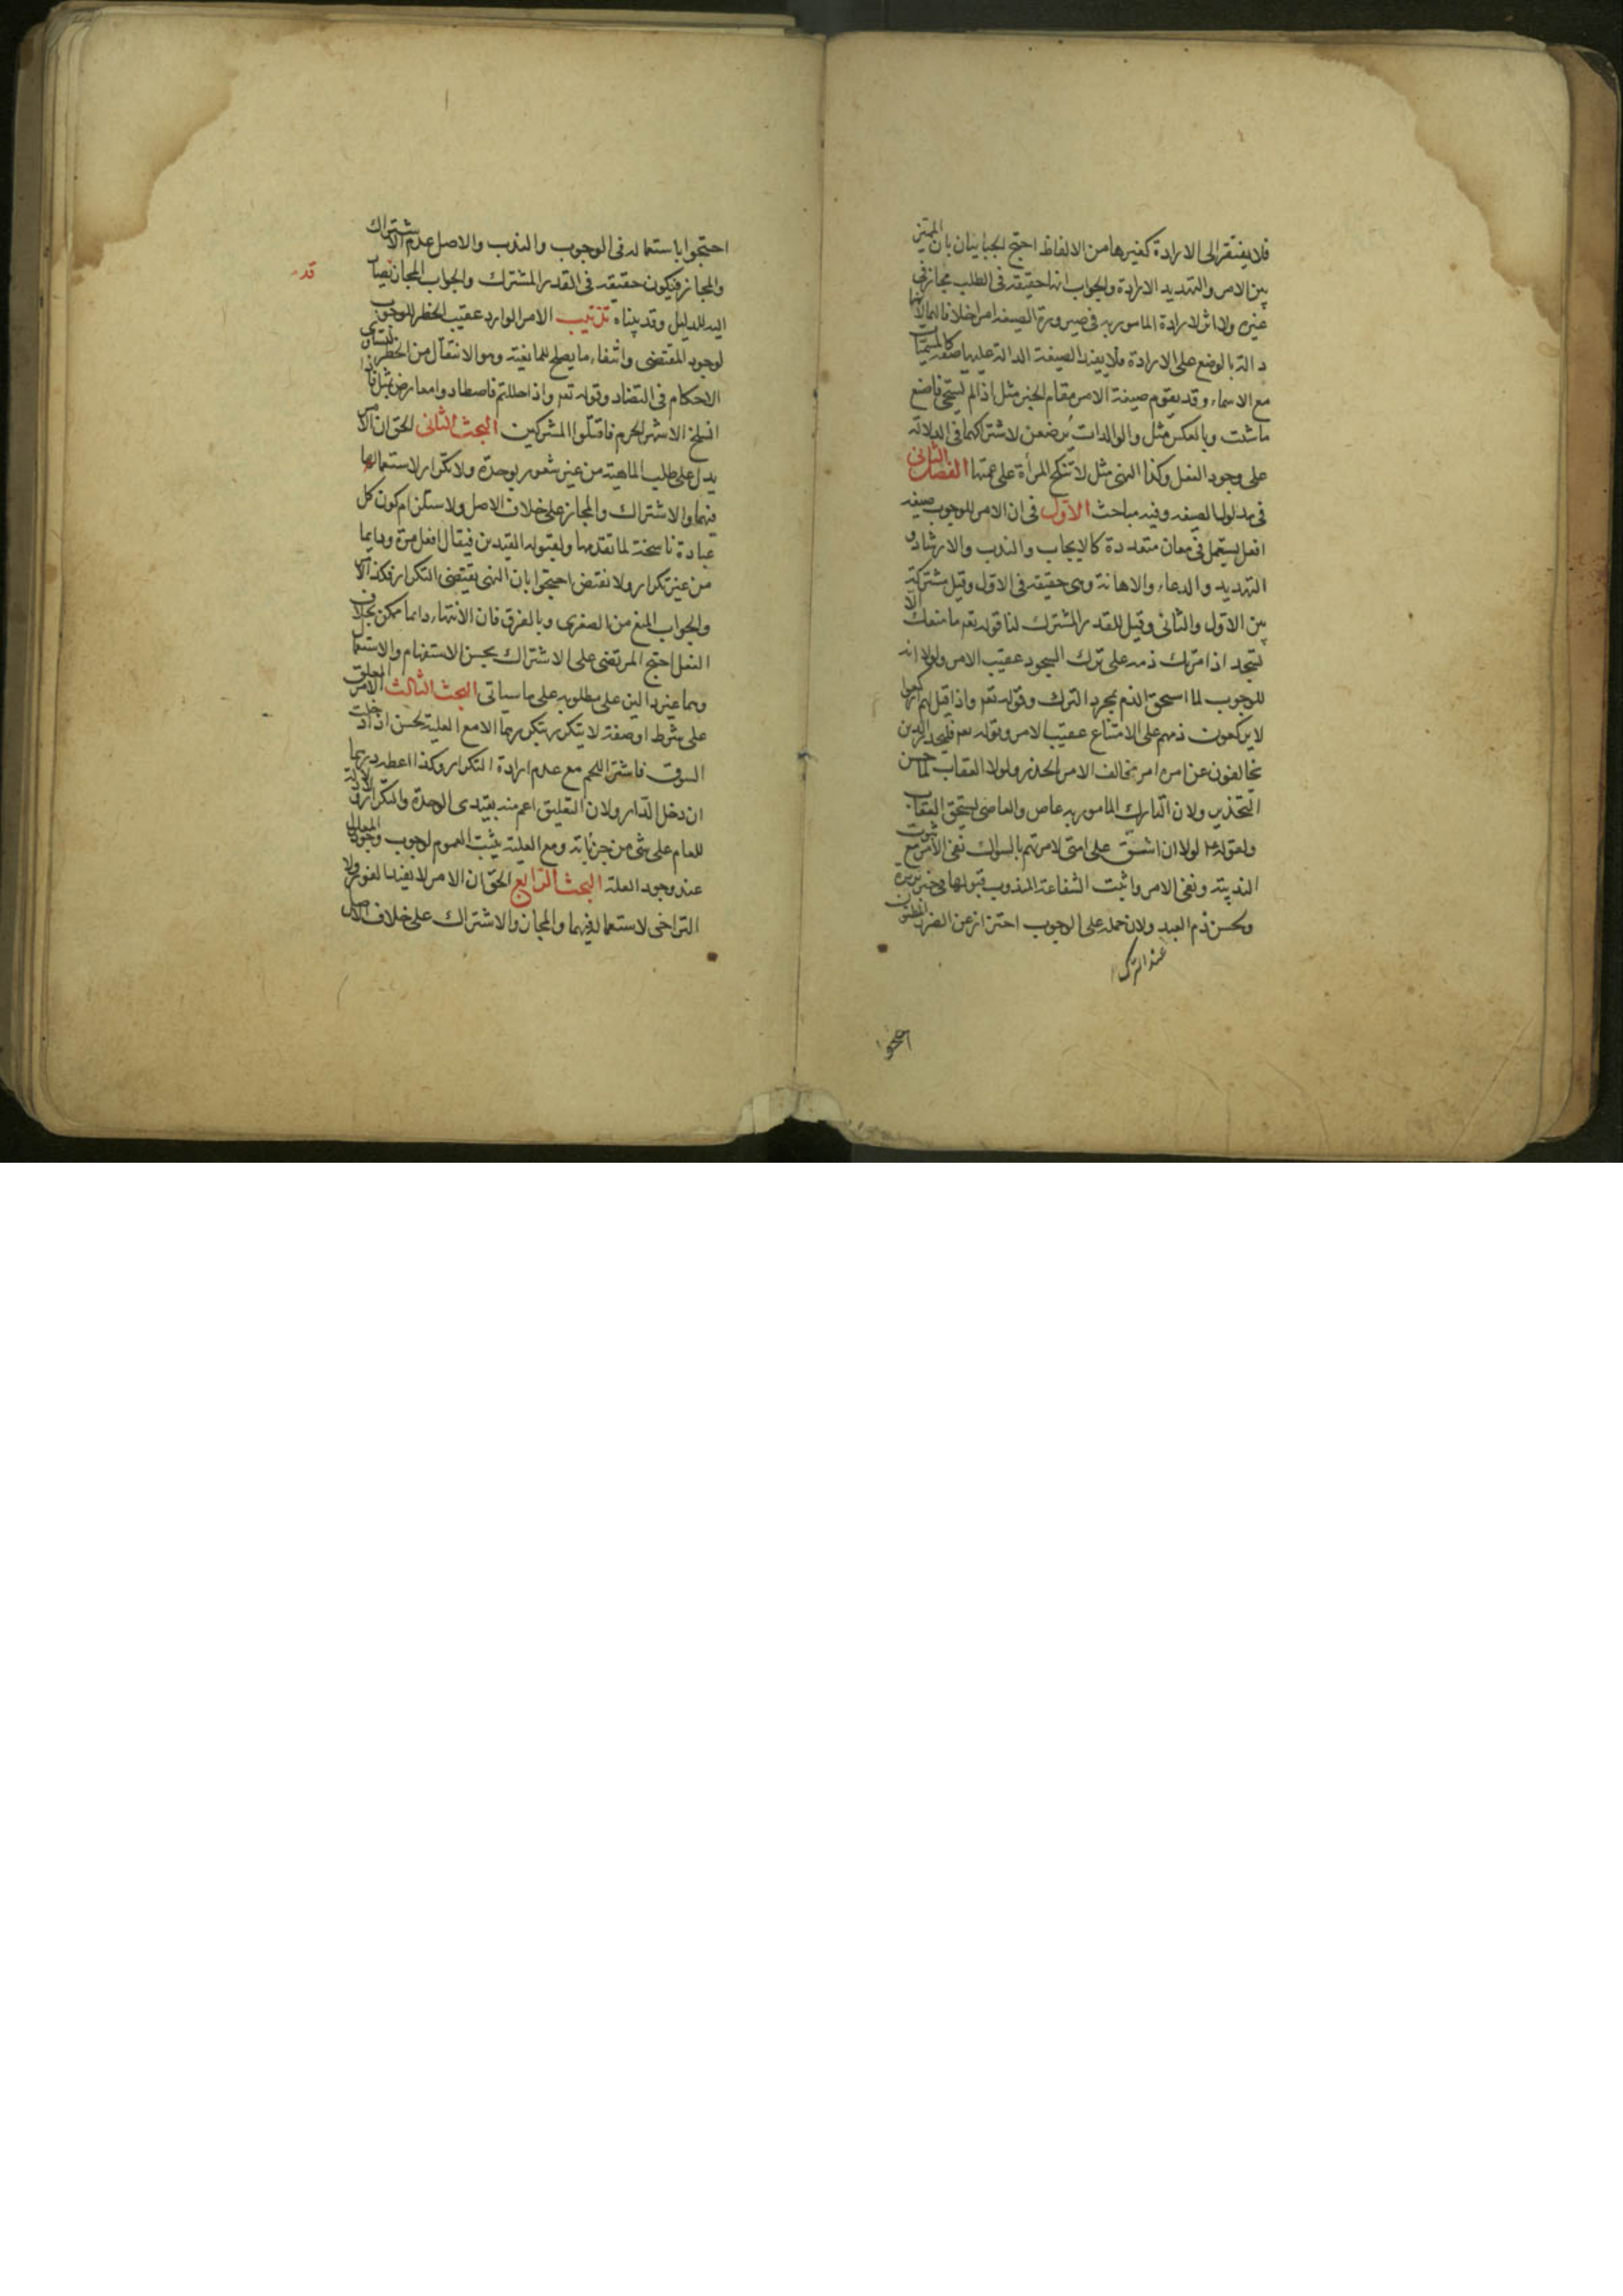 فلا يفتقر الى الارادة كغيرها من الالفاظ احتج الجبائيان بان المميز
بين الامر والتهديد الارادة والجواب انها حقيقة فى الطلب مجاز فى
غيره ولا اثر لارادة المامور به فى صيرورة الصيغه امرا خلافا لهما لانها
دالة بالوضع على الارادة فلا يفيد الصيغة الدالة عليها صفة كالمسميات
مع الاسماء وقد يقوم صيغة الامر مقام الخبر مثل اذا لم تستحى فاصنع
ما شئت وبالعكس مثل والوالدات يُرضعن لاشتراكهما فى الدلالة
على وجود الفعل وكذا النهى مثل لا تنكح المرأة على عمتها الفصل الثانى
فى مدلول الصيغه وفيه مباحث الاوّل فى ان الامر للوجوب صيغه
افعل يستعمل فى معان متعددة كالايجاب والندب والارشاد و
التهديد والدعاء والاهانة وهى حقيقة فى الاول وقيل مشتركة
بين الاوّل والثانى وقيل للقدر المشترك لنا قوله تعم ما منعك الا
تسجد اذ امرتك ذمه على ترك السجود عقيب الامر ولولا انه
للوجوب لما استحق الذم بمجرد الترك وقوله تعم واذا قيل لهم اركعوا
لا يركعون ذمهم على الامتناع عقيب الامر وقوله تعم فليحذر الذين
يخالفون عن امره امر مخالف الامر بالحذر ولولا العقاب لما حسن
التحذير ولان التارك المامور به عاص والعاصى يستحق العقاب
ولقوله لولا ان اشق على امتى لامرتهم بالسواك نفى الامر مع ثبوت
الندبية ونفى الامر واثبت الشفاعة المندوب قبولها فى خبر بريرة
ويحسن ذم العبد ولان حمله على الوجوب احتراز عن الضرر المظنون
عند الترك
احتجوا
احتجوا باستعماله فى الوجوب والندب والاصل عدم الاشتراك
والمجاز فيكون حقيقة فى القدر المشترك والجواب المجاز يصار
قد
اليه للدليل وقد بيناه تذنيب الامر الوارد عقيب الحظر للوجوب
لوجود المقتضى وانتفاء ما يصلح للمانعية وهو الانتقال من الحظر لتساوى
الاحكام فى التضاد وقوله تعم واذا حللتم فاصطادوا معارض بمثل فاذا
انسلخ الاشهر الحرم فاقتلوا المشركين البحث الثانى الحق ان الامر
يدل على طلب الماهية من غير شعور بوحدة ولا تكرار لاستعمالها
فيهما والاشتراك والمجاز على خلاف الاصل ولاستلزام كون كل
عبادة ناسخة لما تقدمها ولقبوله القيدين فيقال افعل مرة ودايما
من غير تكرار ولا نقض احتجوا بان النهى يقتضى التكرار فكذا الامر
والجواب المنع من الصغرى وبالفرق فان الانتهاء دايما ممكن بخلاف
الفعل احتج المرتضى على الاشتراك بحسن الاستفهام والاستعمال
وهما غير دالين على مطلوبه على ما سياتى البحث الثالث الامر المعلق
على شرط او صفة لا يتكرر بتكررهما الا مع العلية لحسن اذا دخلت
السوق فاشتر اللحم مع عدم ارادة التكرار وكذا اعطه درهما
ان دخل الدار ولان التعليق اعم منه بقيدى الوحدة والتكرار ولا دلالة
للعام على شى من جزئياته ومع العلية يثبت العموم لوجوب وجود المعلول
عند وجود العلة البحث الرابع الحق ان الامر لا يفيد الفور ولا
التراخى لاستعماله فيهما والمجاز والاشتراك على خلاف الاصل